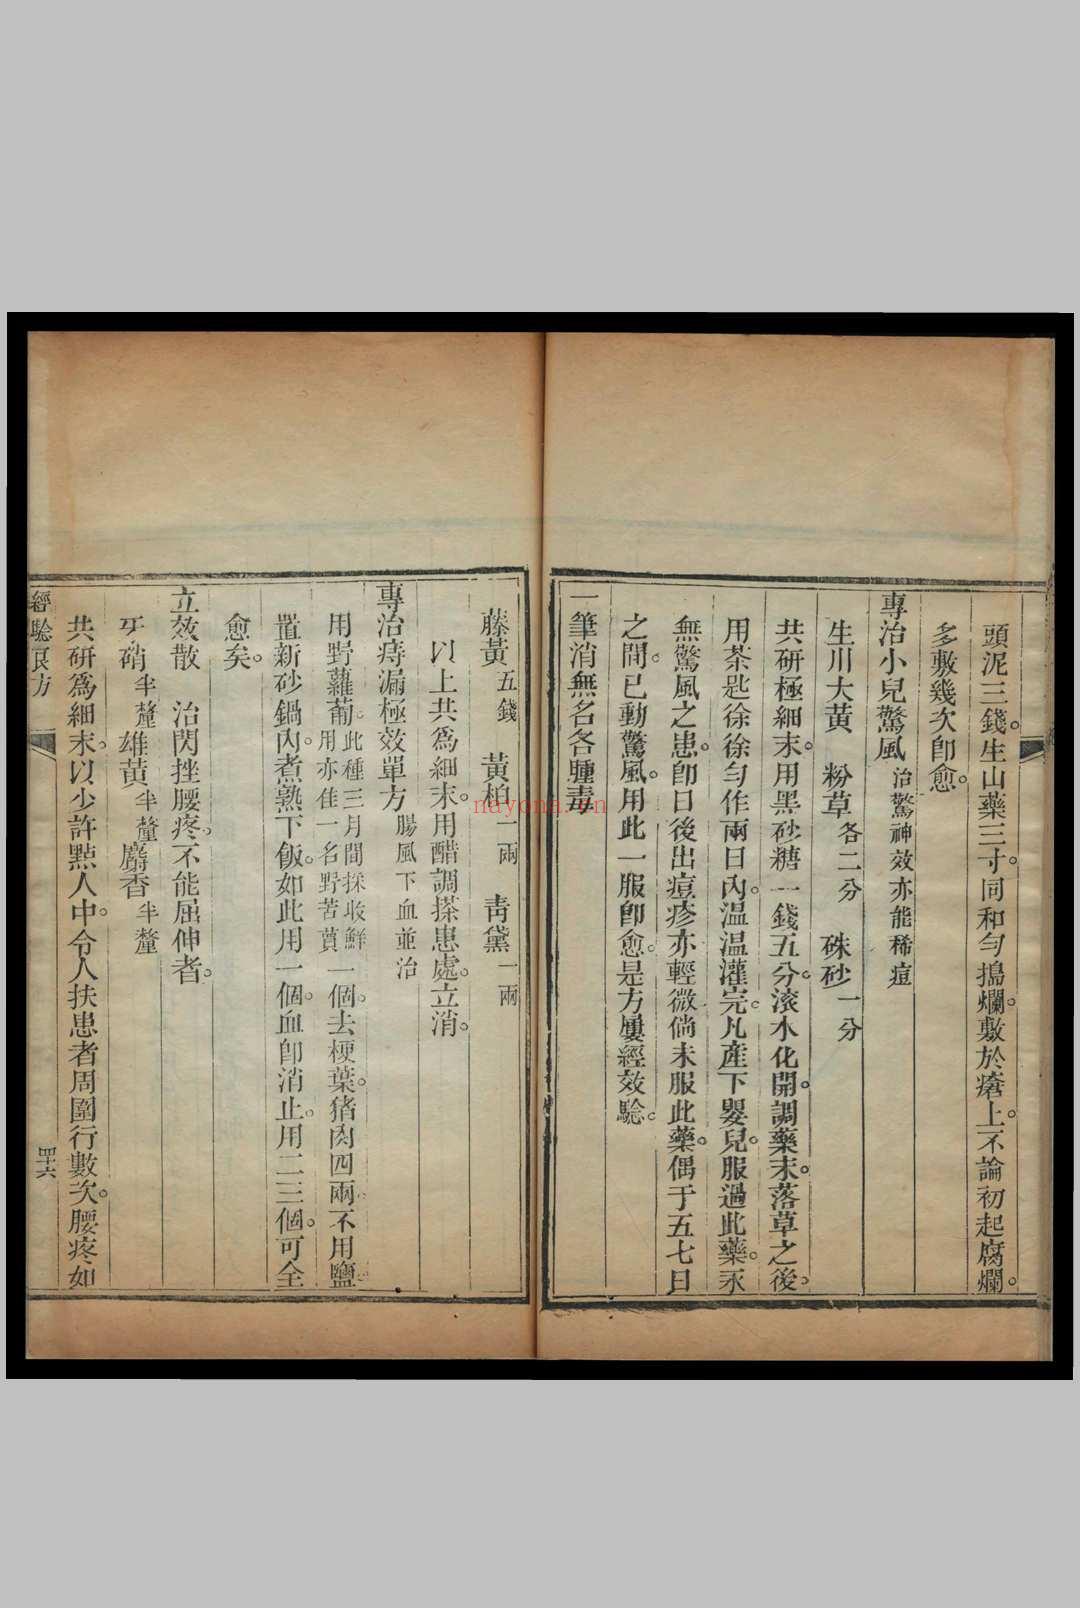 頭泥三錢。生山藥三寸。同和勻搗爛。敷於瘡上。不論初起腐爛。
多敷幾次卽愈。
專治小兒驚風 治驚神效亦能稀痘
生川大黃 粉草各二分 硃砂一分
共研極細末。用黑砂糖一錢五分。滚水化開。調藥末。落草之後。
用茶匙徐徐勻作兩日內。温温灌完。凡產下嬰兒。服過此藥。永
無驚風之患。卽日後出痘疹亦輕微倘未服此藥。偶于五七日
之間。已動驚風。用此一服卽愈。是方屢經效驗。
一筆消無名各腫毒
藤黃五錢 黃柏一兩 靑黛一兩
以上共爲細末。用醋調搽患處。立消。
專治痔漏極效單方 腸風下血並治
用野蘿蔔。此種三月間採收鮮用亦佳一名野苦蕒一個。去梗葉。猪肉四兩。不用鹽。
置新砂鍋內。煮熟下飯。如此用一個。血卽消止。用二三個。可全
愈矣。
立效散 治閃挫腰疼。不能屈伸者。
牙硝半釐雄黃半釐麝香半釐
共研爲細末。以少許點人中。令人扶患者周圍行數次。腰疼如
經驗良方
四十六
nayona.cn